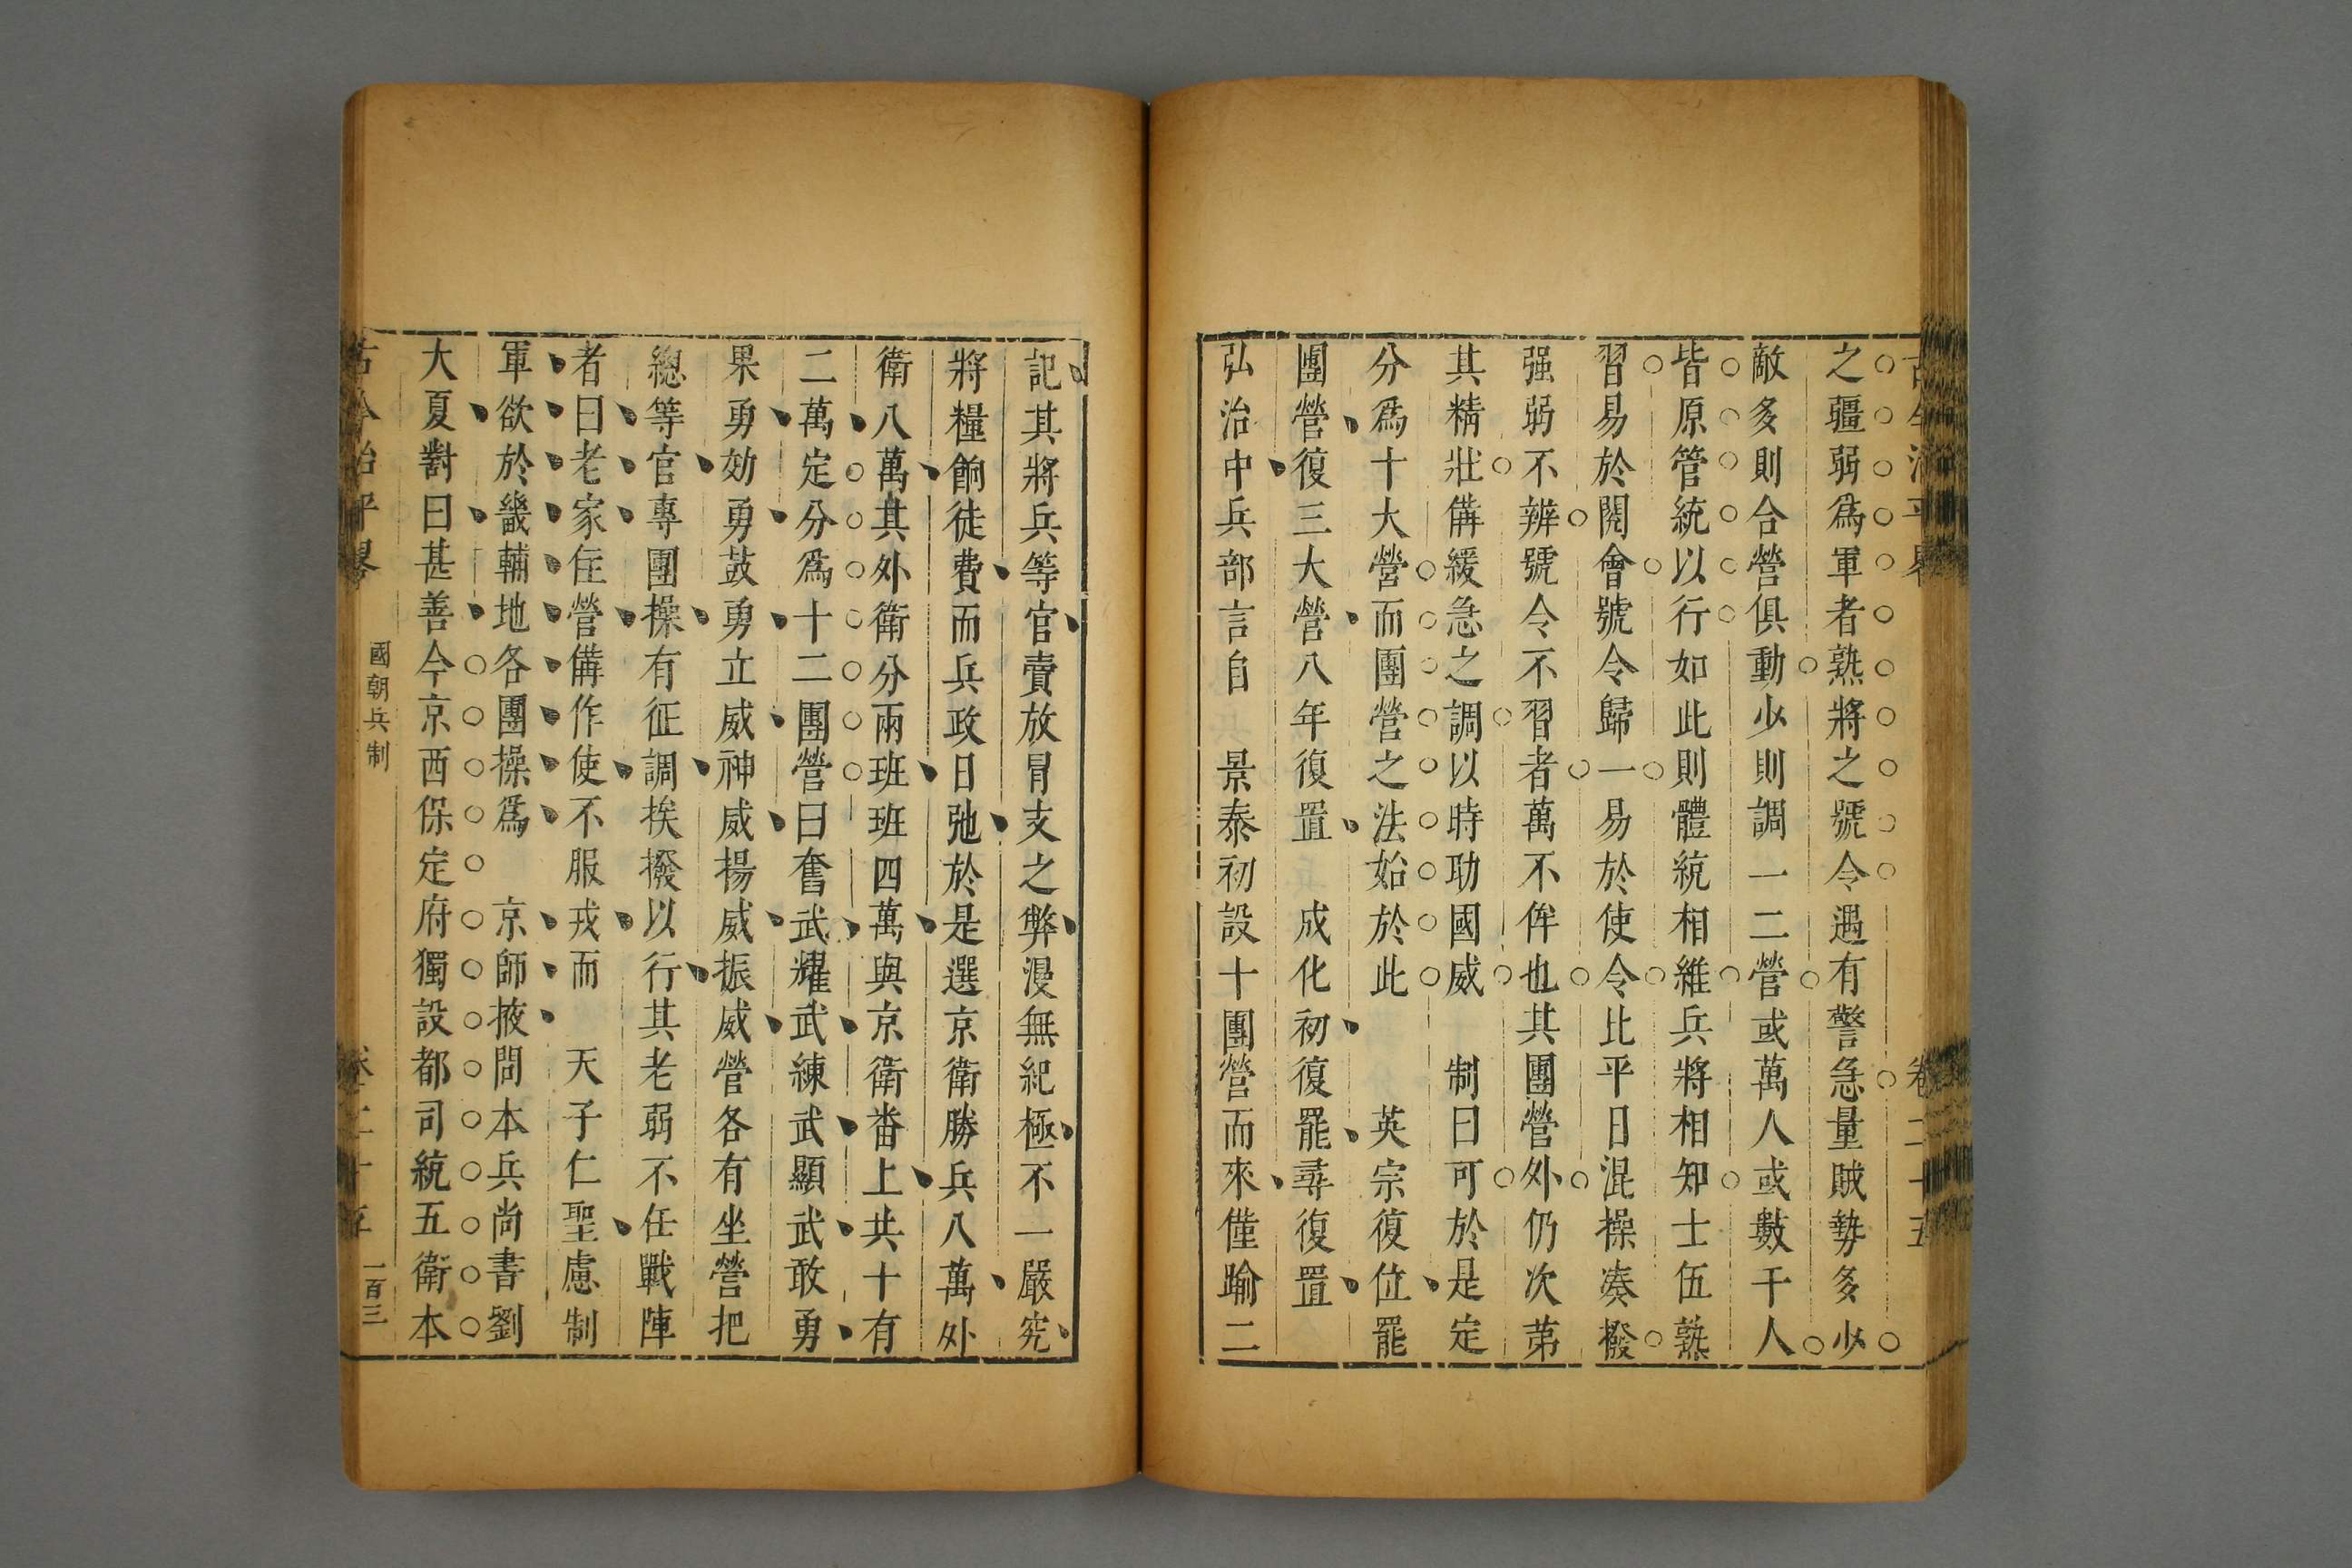 古今治平畧 卷二十五
之疆弱爲軍者熟將之號令遇有警急量賊勢多少
敵多則合營俱動少則調一二營或萬人或數千人
皆原管統以行如此則體統相維兵將相知士伍熟
習易於閱會號令歸一易於使令比平日混操凑撥
强弱不辨號令不習者萬不侔也其團營外仍次第
其精壯備緩急之調以時助國威 制曰可於是定
分爲十大營而團營之法始於此 英宗復位罷
團營復三大營八年復置 成化初復罷尋復置
弘治中兵部言自 景泰初設十團營而來僅踰二
記其將兵等官賣放冒支之弊漫無紀極不一嚴究
將糧餉徒費而兵政日弛於是選京衛勝兵八萬外
衛八萬其外衛分兩班班四萬與京衛畨上共十有
二萬定分爲十二團營曰奮武耀武練武顯武敢勇
果勇効勇鼓勇立威神威揚威振威營各有坐營把
總等官專團操有征調挨撥以行其老弱不任戰陣
者曰老家住營備作使不服戎而 天子仁聖慮制
軍欲於畿輔地各團操爲 京師掖問本兵尚書劉
大夏對曰甚善今京西保定府獨設都司統五衛本
古今治平畧 國朝兵制 卷二十五 一百三